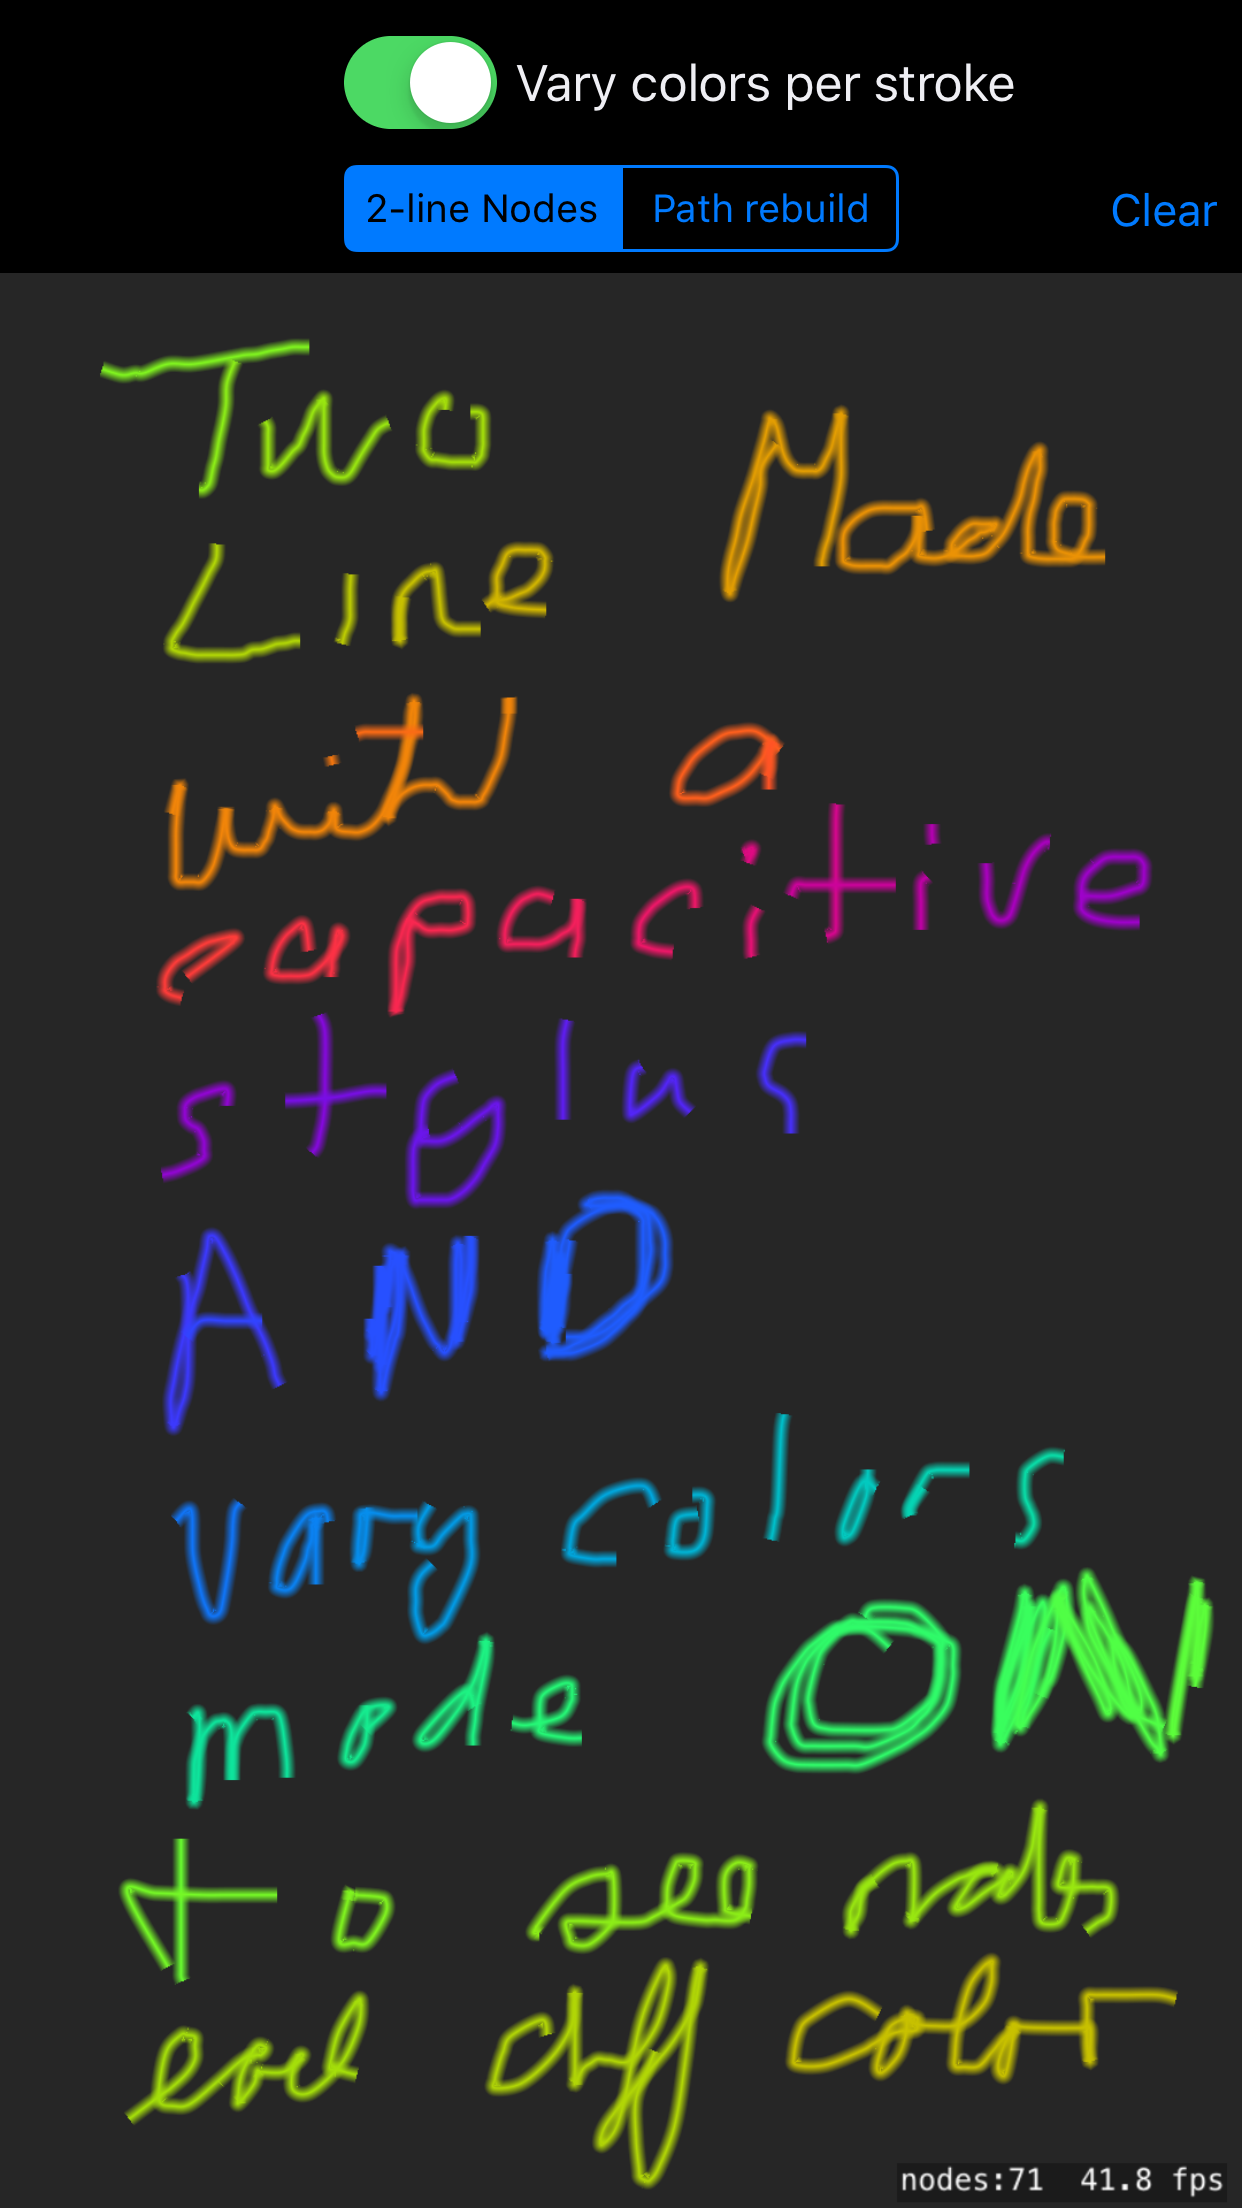 Vary colors per stroke
2-line Nodes Path rebuild Clear
Two
Made
Line
with a
capacitive
stylus
AND
vary colors
mode ON
to see nodes
each diff color
nodes:71 41.8 fps